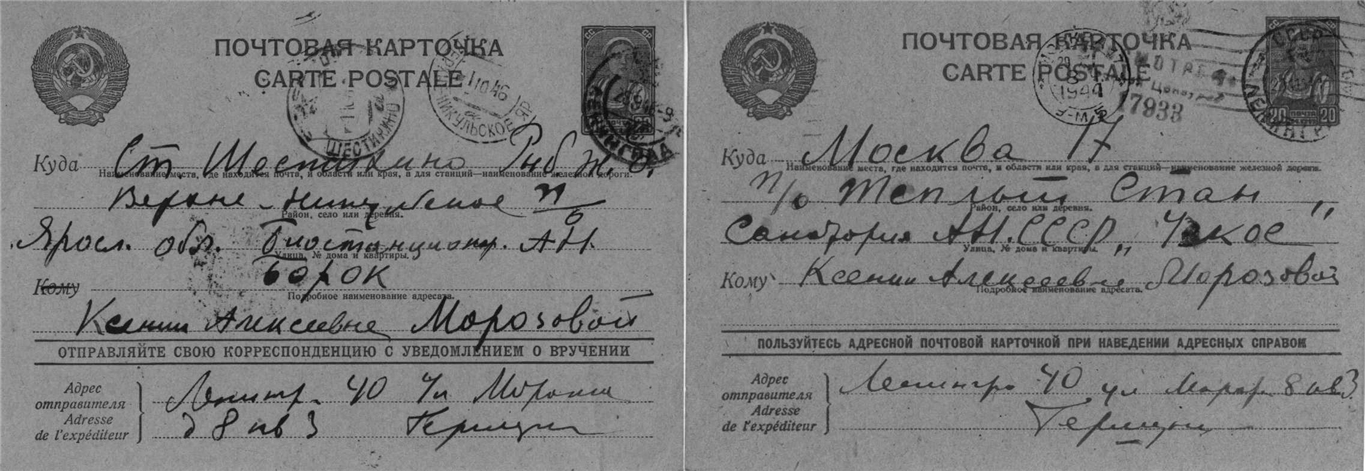 ПОЧТОВАЯ КАРТОЧКА
CARTE POSTALE
1 10 46
НИКУЛЬСКОЕ
ШЕСТИХИНО
ЛЕНИНГРАД
Куда Ст Шестихино
Наименование места, где находится почта, и области или края, а для станций—наименование железной дороги.
Верхне-Никульское п/о
Район, село или деревня.
Яросл. обл. Биостанция АН.
Улица, № дома и квартиры.
Борок
Кому
Подробное наименование адресата.
Ксении Алексеевне Морозовой
ОТПРАВЛЯЙТЕ СВОЮ КОРРЕСПОНДЕНЦИЮ С УВЕДОМЛЕНИЕМ О ВРУЧЕНИИ
Адрес отправителя
Adresse de l'expéditeur
Ленингр. 40 ул Марата
д 8 кв 3
ПОЧТОВАЯ КАРТОЧКА
CARTE POSTALE
1944
17933
СССР
ЛЕНИНГР
20 20
Куда Москва 17
Наименование места, где находится почта, и области или края, а для станций—наименование железной дороги.
п/о Теплый Стан
Район, село или деревня.
Санатория АН.СССР „Узкое"
Улица, № дома и квартиры.
Кому Ксении Алексеевне Морозовой
Подробное наименование адресата.
ПОЛЬЗУЙТЕСЬ АДРЕСНОЙ ПОЧТОВОЙ КАРТОЧКОЙ ПРИ НАВЕДЕНИИ АДРЕСНЫХ СПРАВОК
Адрес отправителя
Adresse de l'expéditeur
Ленингр 40 ул Марат. 8 кв 3